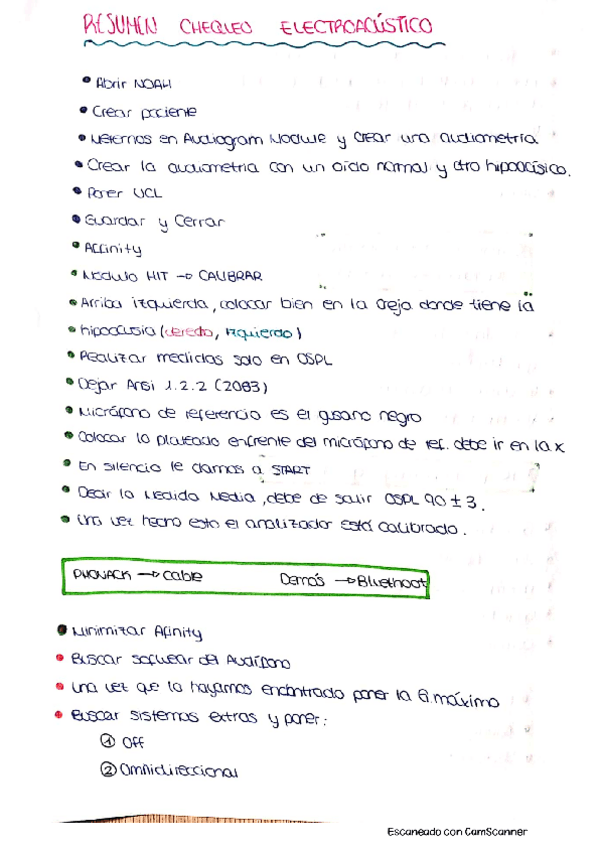 RESUMEN CHEQUEO ELECTROACÚSTICO
• Abrir NOAH
• Crear paciente
• Meternos en Audiogram Module y crear una audiometría
• Crear la audiometría con un oído normal y otro hipoacúsico.
• Poner UCL
• Guardar y Cerrar
• Affinity
• Módulo HIT → CALIBRAR
• Arriba izquierda, colocar bien en la oreja donde tiene la
• hipoacusia (derecho, izquierdo)
• Realizar medidas solo en OSPL
• Dejar Ansi 1.2.2 (2083)
• Micrófono de referencia es el gusano negro
• Colocar lo plateado enfrente del micrófono de ref. debe ir en la x
• En silencio le damos a START
• Decir la Medida Media, debe de salir OSPL 90 ± 3.
• Una vez hecho esto el analizador está calibrado.
PHONACK → Cable Demás → Bluethoot
• Minimizar Afinity
• Buscar sofwear del Audífono
• Una vez que lo hayamos encontrado poner la G.máximo
• Buscar sistemas extras y poner:
① Off
② Omnidireccional
Escaneado con CamScanner